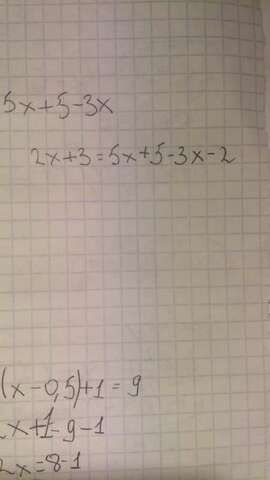 5x+5-3x
2x+3=5x+5-3x-2
(x-0,5)+1=9
2x+1=9-1
2x=8-1